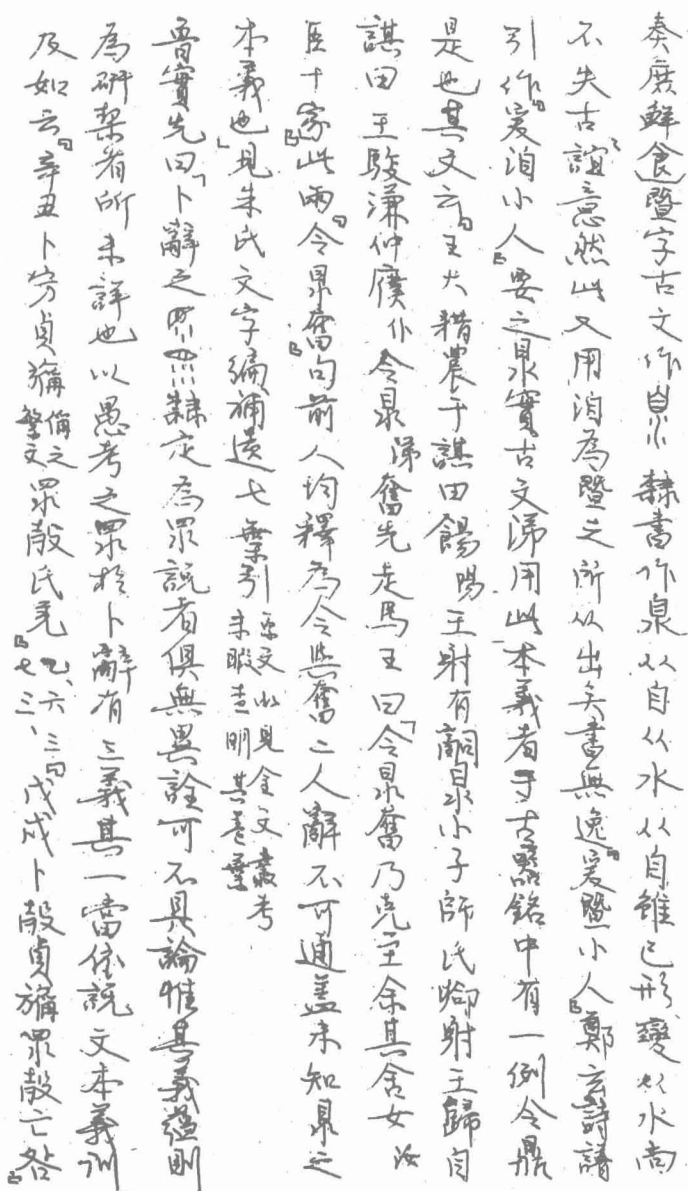 奏庶鮮食曁字古文作𣊫隸書作泉从自从水从自雖已形變从水尚
不失古誼意然此又用洎為曁之所从出矣書無逸「爰曁小人」鄭玄詩譜
引作「爰洎小人」要之泉實古文涕用此本義者于古器銘中有一例令鼎
是也其文云「王大耤農于諆田餳陽王射有𤔲泉小子師氏卿射王歸自
諆田王馭溓仲僕仆令泉涕奮先走馬王曰「令泉奮乃克至余其舍女汝
臣十家」此兩「令泉奮」句前人均釋為令與奮二人辭不可通蓋未知泉之
本義也」見朱氏文字編補遺七葉引原文必見金文叢考未暇查明其卷葉
魯實先曰「卜辭之 隸定為眔說者俱無異詮可不具論惟其義蘊則
為硏栔者所未詳也以愚考之眔於卜辭有三義其一當依說文本義訓
及如云「辛丑卜㝑貞㫋偁之繁文眔㱿氏羌」七三、「戊戌卜㱿貞㫋眔㱿亡咎」